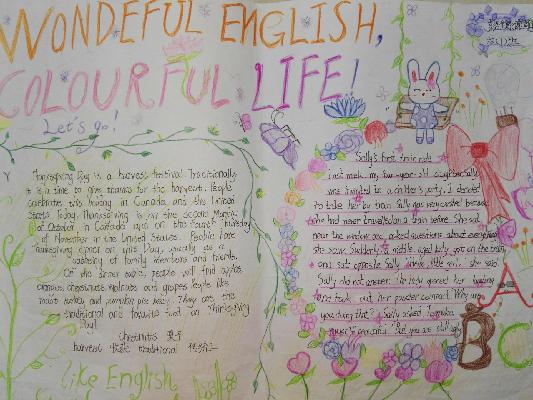 WONDEFUL ENGLISH,
COLOURFUL LIFE!
Let's go!
Thanksgiving Day is a harvest festival. Traditionally,
it is a time to give thanks for the harvest. People
celebrate this holiday in Canada and the United
States Today. Thanksgiving is on the second Monday
of October in Canada and on the fourth Thursday
of November in the United States. People have
Thanksgiving dinner on this day, usually as a
gathering of family members and friends.
On the dinner table, people will find apples,
oranges, chestnuts, walnuts and grapes. People like
roast turkey and pumpkin pie best. They are the
traditional and favourite food on Thanksgiving
Day!
chestnuts
harvest traditional
like English
Sally's first train ride
Last week, my two-year-old daughter Sally
was invited to a children's party. I decided
to take her by train. Sally was very excited because
she had never travelled on a train before. She sat
near the window and asked questions about everything
she saw. Suddenly, a middle aged lady got on the train
and sat opposite Sally. she said.
Sally did not answer. The lady opened her handbag
and took out her powder compact. Why are
you doing that? Sally asked. To make
myself beautiful. But you are still ugly
A
B
C